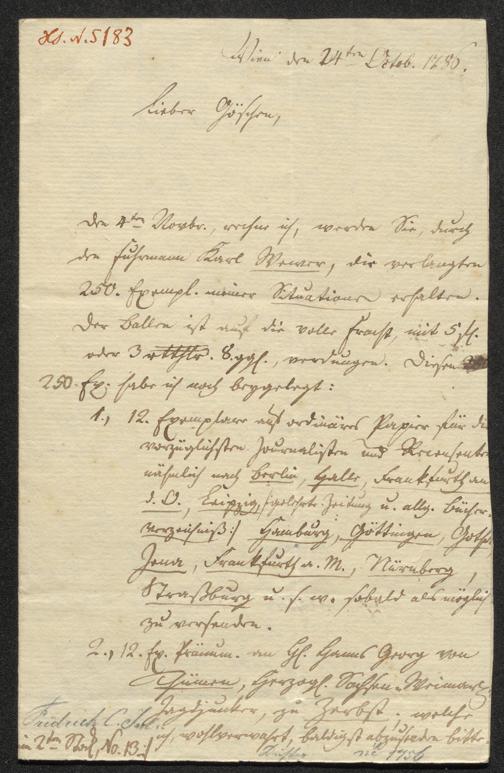 Hs. N. 5183
Wien den 24ten Octob. 1786.
Lieber Göschen,
Den 4ten Novbr., rechne ich, werden Sie, durch
den Fuhrmann Karl Wewer, die verlangten
250. Exempl. meiner Situationen erhalten.
Der Ballen ist auf die volle Fracht, mit 5 fl.
oder 3 rtthlr. 8. ggl., verdungen. Diesen
250. Ex. habe ich noch beygelegt:
1., 12. Exemplare auf ordinäres Papier für die
vorzüglichsten Journalisten und Recensenten
nähmlich nach Berlin, Halle, Frankfurth an
d. O., Leipzig, /:gelehrte Zeitung u. allg. Bücher-
verzeichniß:/ Hamburg, Göttingen, Gotha
Jena, Frankfurth a. M., Nürnberg,
Straßburg u. s. w. sobald als möglich
zu versenden.
2., 12. Ex. Pränum. an H. Hanns Georg von
Thümen, Herzogl. Sachsen-Weimar.
Jagdjunker, zu Zerbst, welche
ich, wohlverwahrt, baldigst abzusenden bitte
im 2ten Stock, No. 13:/
Friedrich
Richter
1756